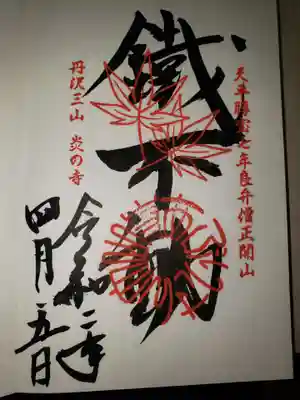 天平勝寳七年良弁僧正開山
鐵不動
丹沢三山 炎の寺
令和二年
四月五日